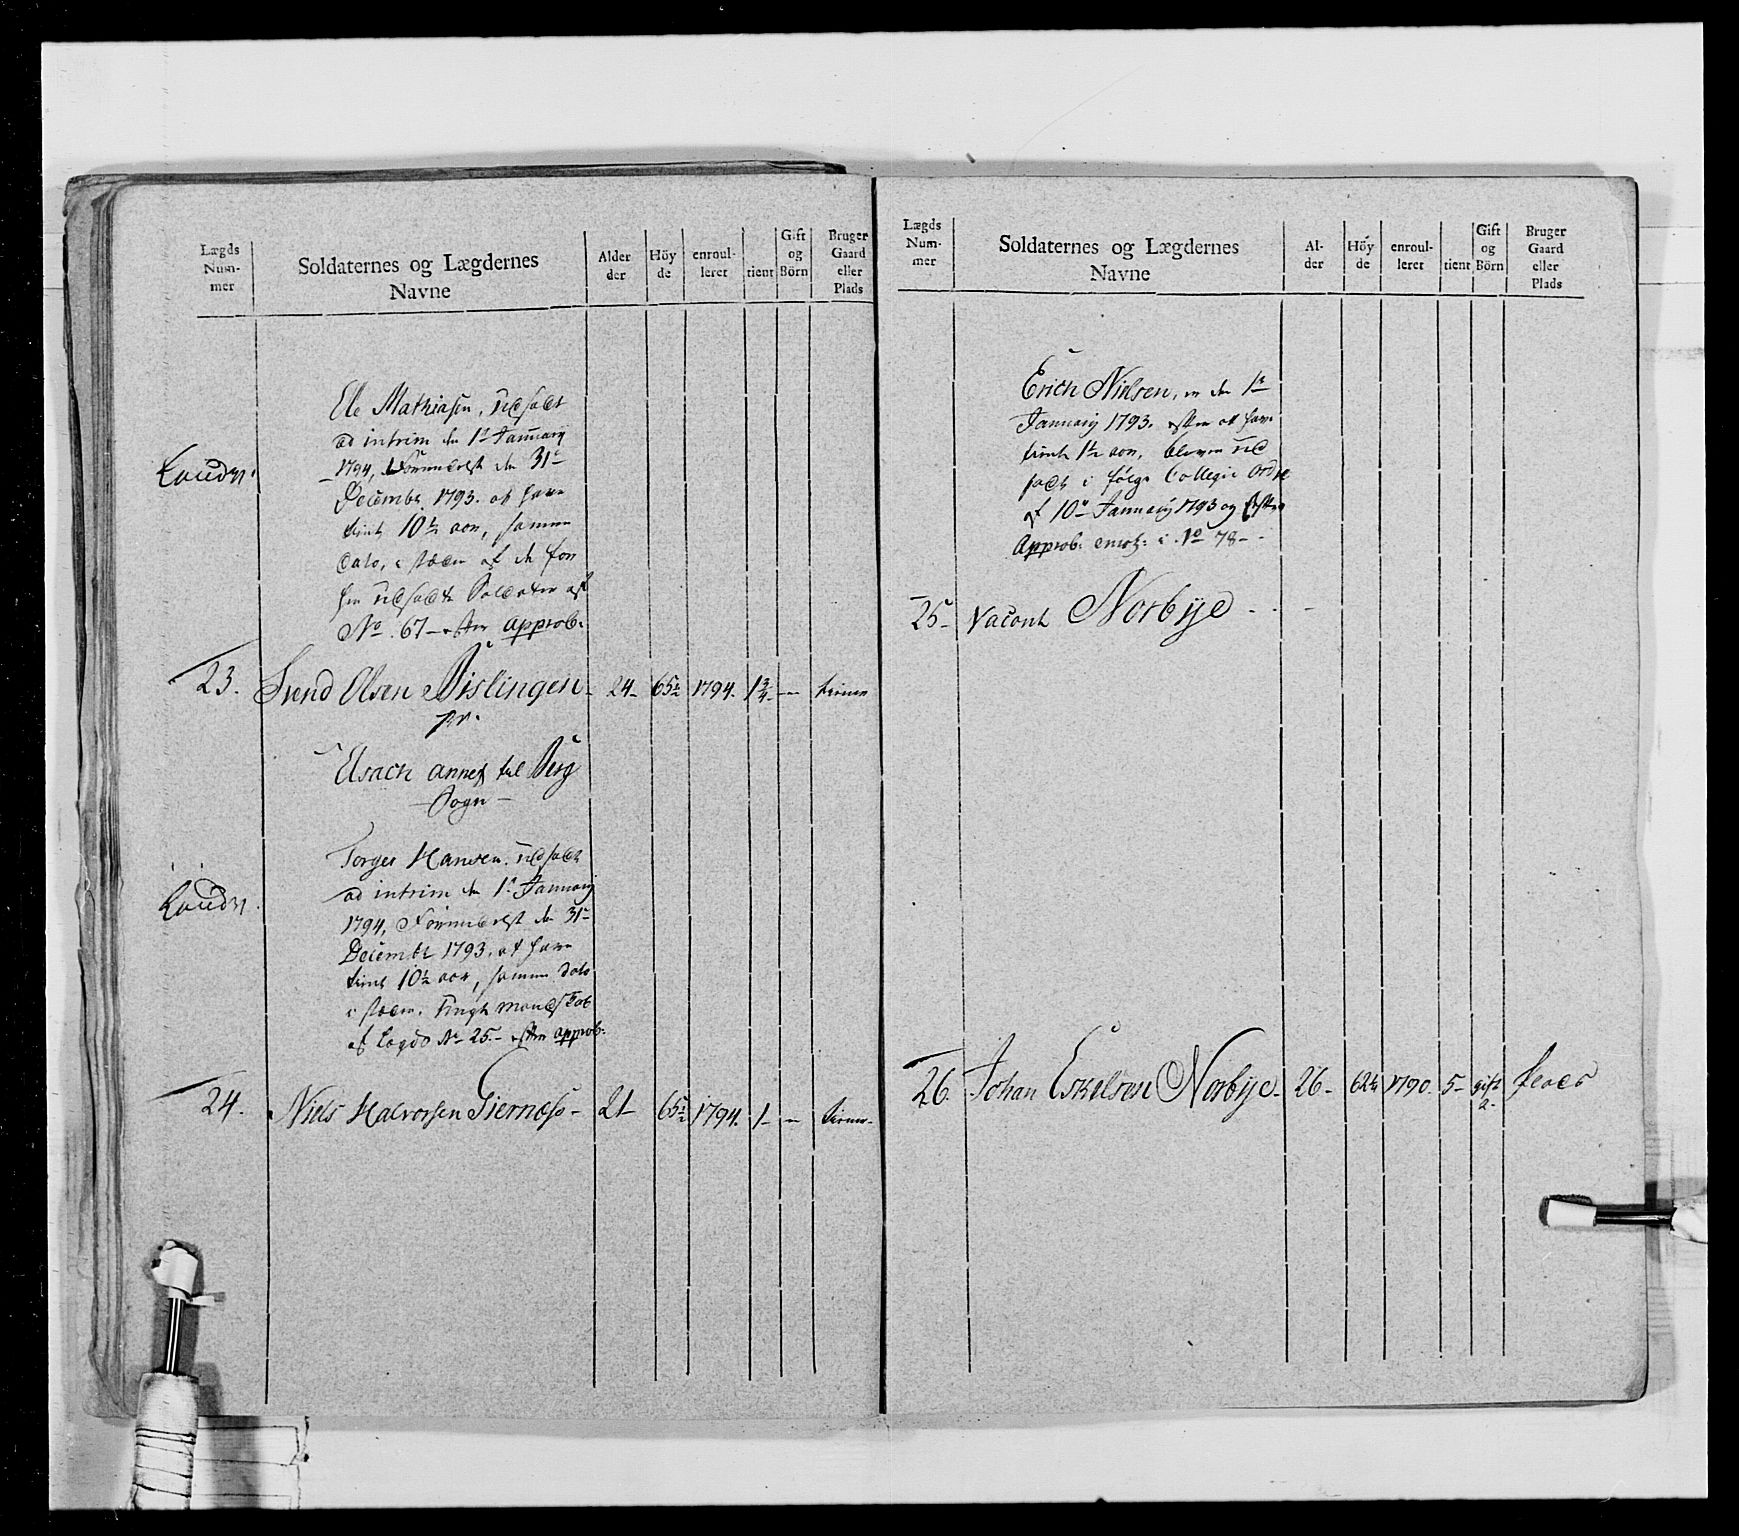 Lægds
Num-
mer
Soldaternes og Lægdernes
Navne
Alder
der
Höy
de
enroul-
leret
tient
Gift
og
Börn
Bruger
Gaard
eller
Plads
Ole Mathiasen, udsadt
ad intrim den 1te Januarij
1794,
den 31te
Decembr. 1793. at have
tient 10½ aar, samme
Dato, i stæden af de for
hen udsadte Soldater af
No. 67 - efter approb:
23. Svend Olsen Bislingen - 24 - 65½ 1794. 1¾ - tiener
Isach annex til Berg
Sogn -
Torger Hansen, udsadt
ad intrim den 1te Januarij
1794, den 31te
Decembr 1793, at have
tient 10½ aar, samme Dato
i stæden,
af Lægd No 25 - efter approb:
24. Niels Halvorsen Giernæss - 21 - 65½ 1794. 1 - - tiener -
Lægds
Num-
mer
Soldaternes og Lægdernes
Navne
Al-
der
Höy
de
enroul-
leret
tient
Gift
og
Börn
Bruger
Gaard
eller
Plads
Erich Nielsen, er den 1te
Januarij 1793. efter at have
tient 1½ aar, bleven ud
sadt i følge Collegie Ordre
af 10de Januarij 1793 og efter
Approb: i No 78 -
25 - Vacant Norbÿe - -
26. Johan Eskelsen Norbÿe - 26 - 62¼ 1790. 5 - gift
2 -